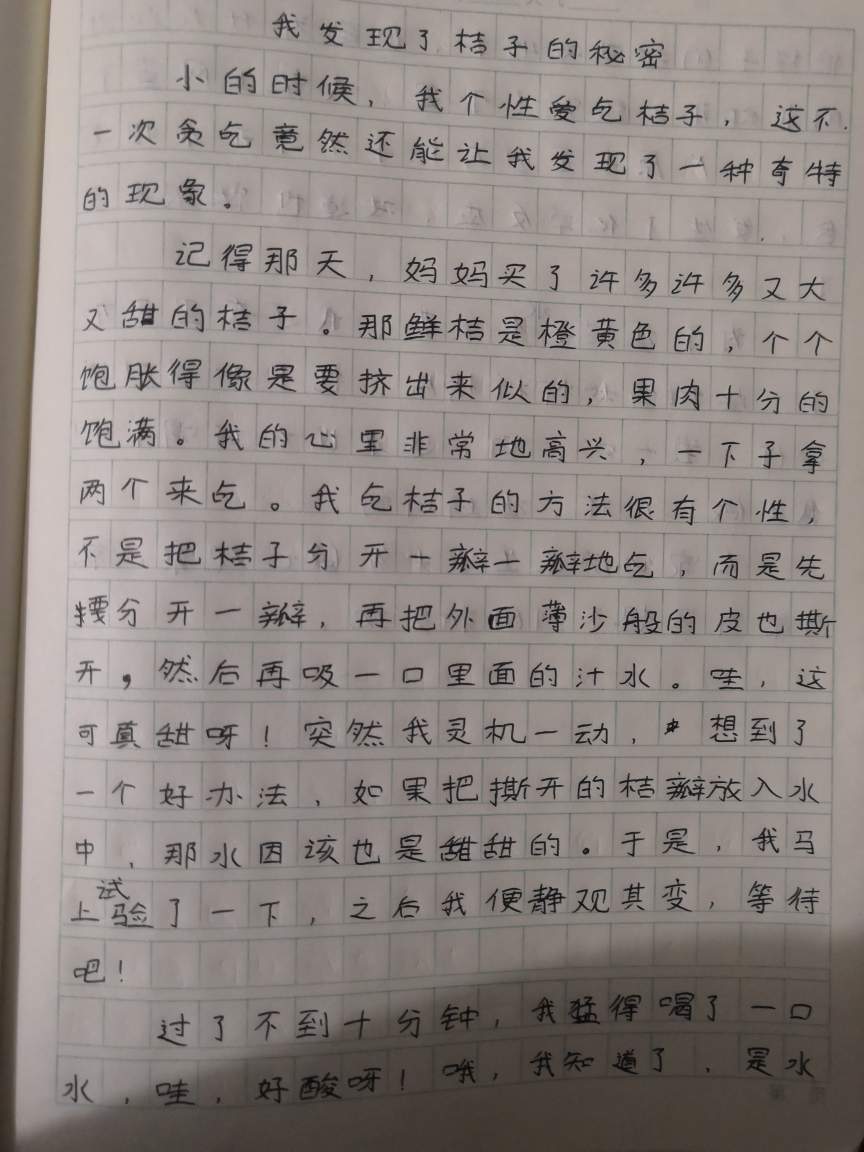 我发现了桔子的秘密
小的时候，我个性爱吃桔子，这不.
一次贪吃竟然还能让我发现了一种奇特
的现象。
记得那天，妈妈买了许多许多又大
又甜的桔子。那鲜桔是橙黄色的，个个
饱胀得像是要挤出来似的，果肉十分的
饱满。我的心里非常地高兴，一下子拿
两个来吃。我吃桔子的方法很有个性，
不是把桔子分开一瓣一瓣地吃，而是先
要分开一瓣，再把外面薄沙般的皮也撕
开，然后再吸一口里面的汁水。哇，这
可真甜呀！突然我灵机一动，想到了
一个好办法，如果把撕开的桔瓣放入水
中，那水因该也是甜甜的。于是，我马
上试验了一下，之后我便静观其变，等待
吧！
过了不到十分钟，我猛得喝了一口
水，哇，好酸呀！哦，我知道了，是水